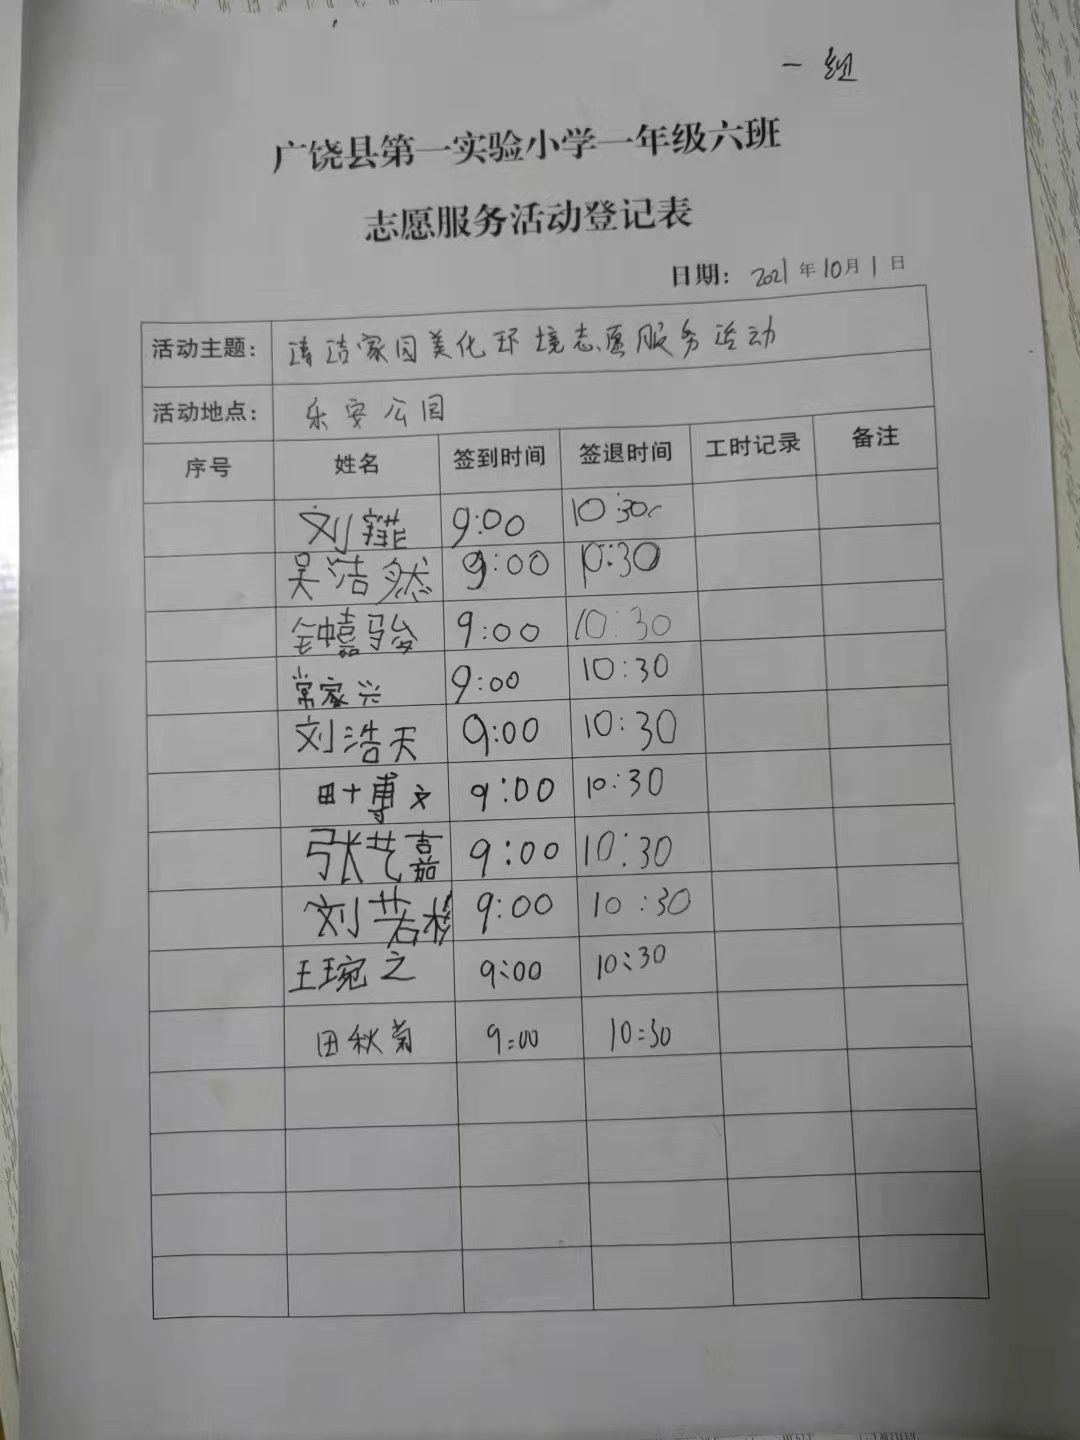 一组
广饶县第一实验小学一年级六班
志愿服务活动登记表
日期: 2021年10月1日
活动主题: 清洁家园美化环境志愿服务活动
活动地点: 乐安公园
序号 姓名 签到时间 签退时间 工时记录 备注
刘 9:00 10:30
吴浩然 9:00 10:30
钟嘉骏 9:00 10:30
常家兴 9:00 10:30
刘浩天 9:00 10:30
叶博文 9:00 10:30
张艺嘉 9:00 10:30
刘若彬 9:00 10:30
王琬之 9:00 10:30
田秋菊 9:00 10:30